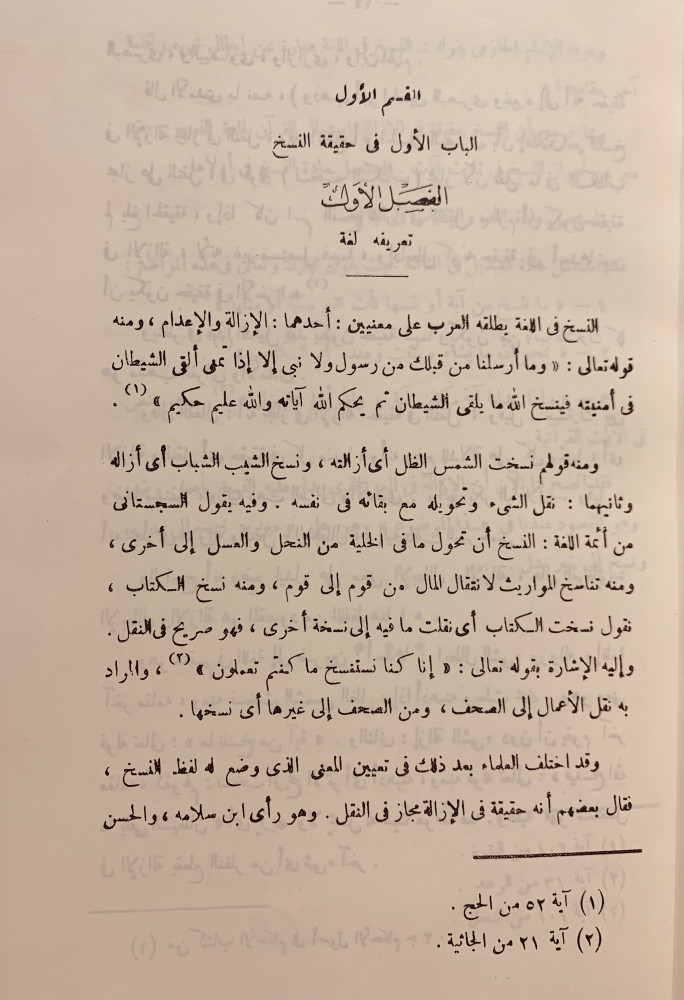 القسم الأول
الباب الأول فى حقيقة النسخ
الفصل الأول
تعريفه لغة
النسخ فى اللغة يطلقه العرب على معنيين : أحدهما : الإزالة والإعدام ، ومنه
قوله تعالى : « وما أرسلنا من قبلك من رسول ولا نبى إلا إذا تمنى ألقى الشيطان
فى أمنيته فينسخ الله ما يلقى الشيطان ثم يحكم الله آياته والله عليم حكيم » (١) .
ومنه قولهم نسخت الشمس الظل أى أزالته ، ونسخ الشيب الشباب أى أزاله
وثانيهما : نقل الشىء وتحويله مع بقائه فى نفسه . وفيه يقول السجستانى
من أئمة اللغة : النسخ أن تحول ما فى الخلية من النحل والعسل إلى أخرى ،
ومنه تناسخ المواريث لانتقال المال من قوم إلى قوم ، ومنه نسخ الكتاب ،
نقول نسخت الكتاب أى نقلت ما فيه إلى نسخة أخرى ، فهو صريح فى النقل .
وإليه الإشارة بقوله تعالى : « إنا كنا نستنسخ ما كنتم تعملون » (٢) ، والمراد
به نقل الأعمال إلى الصحف ، ومن الصحف إلى غيرها أى نسخها .
وقد اختلف العلماء بعد ذلك فى تعيين المعنى الذى وضع له لفظ النسخ ،
فقال بعضهم أنه حقيقة فى الإزالة مجاز فى النقل . وهو رأى ابن سلامه ، والحسن
(١) آية ٥٢ من الحج .
(٢) آية ٢١ من الجاثية .